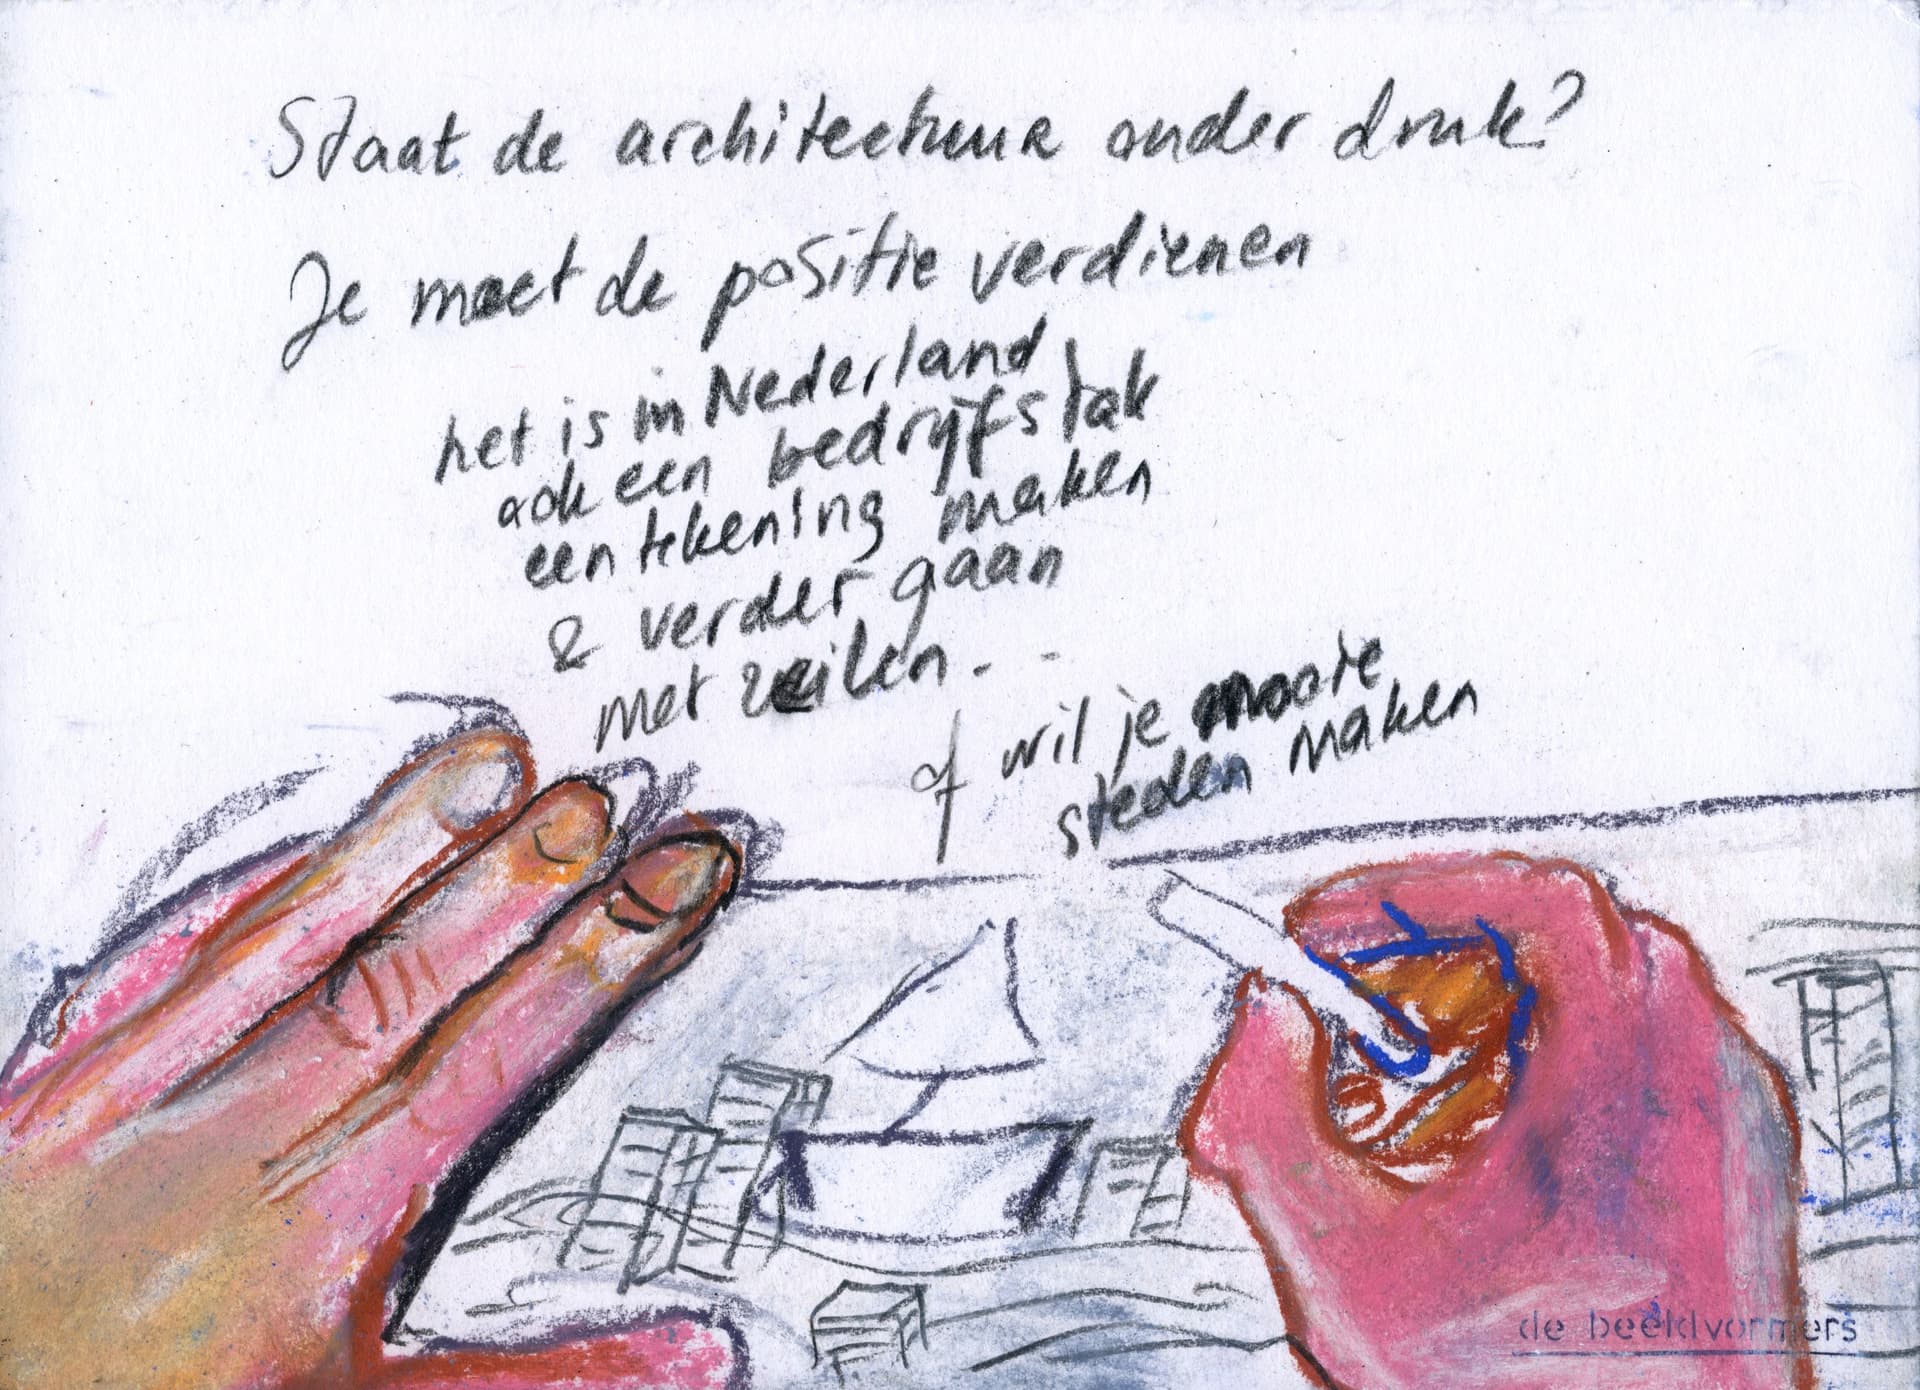 Staat de architectuur onder druk?
Je moet de positie verdienen
het is in Nederland
ook een bedrijfstak
een tekening maken
& verder gaan
met zeilen..
of wil je mooie
steden maken
de beeldvormers